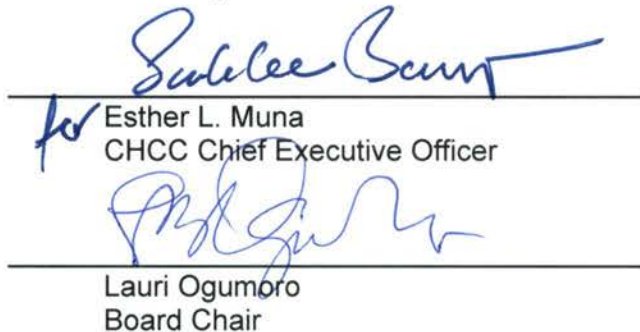 for Esther L. Muna
CHCC Chief Executive Officer
Lauri Ogumoro
Board Chair